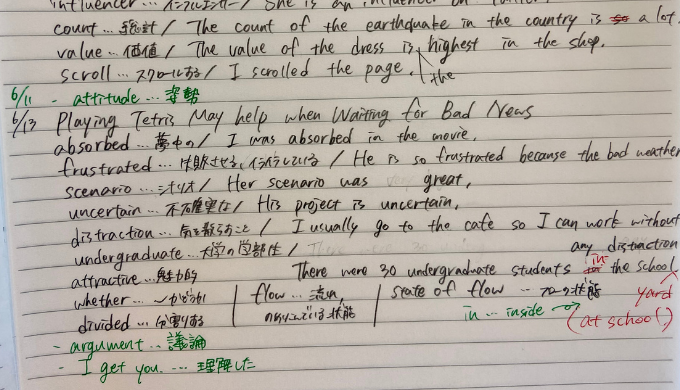 influencer... インフルエンサー / She is an influencer on
count... 総計 / The count of the earthquake in the country is so a lot.
value... 価値 / The value of the dress is highest in the shop.
scroll... スクロールする / I scrolled the page. the
6/11 - attitude... 姿勢
6/13 Playing Tetris May help when Waiting for Bad News
absorbed... 夢中の / I was absorbed in the movie.
frustrated... 失敗させる、イライラしている / He is so frustrated because the bad weather
scenario... シナリオ / Her scenario was great.
uncertain... 不確実な / His project is uncertain.
distraction... 気を散らすこと / I usually go to the cafe so I can work without
any distraction
undergraduate... 大学の学部生 / There were 30
attractive... 魅力的 There were 30 undergraduate students in the school
whether... ～かどうか | flow... 流れ, | state of flow... フローの状態 yard
divided... 分割する | のめりこんでいる状態 | in... inside → (at school)
- argument... 議論
- I get you.... 理解した